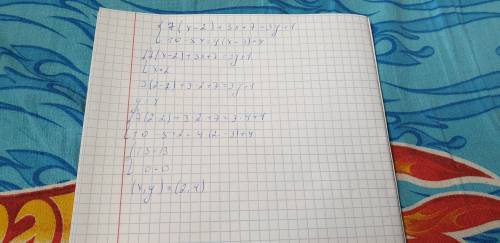 { 7(x-2)+3x+7=3y+1
10-5x=4(x-3)+4
{ 7(x-2)+3x+7=3y+1
x=2
7(2-2)+3·2+7=3y+1
y=4
{ 7(2-2)+3·2+7=3·4+1
10-5·2=4(2-3)+4
{ 13=13
0=0
(x,y)=(2,4)